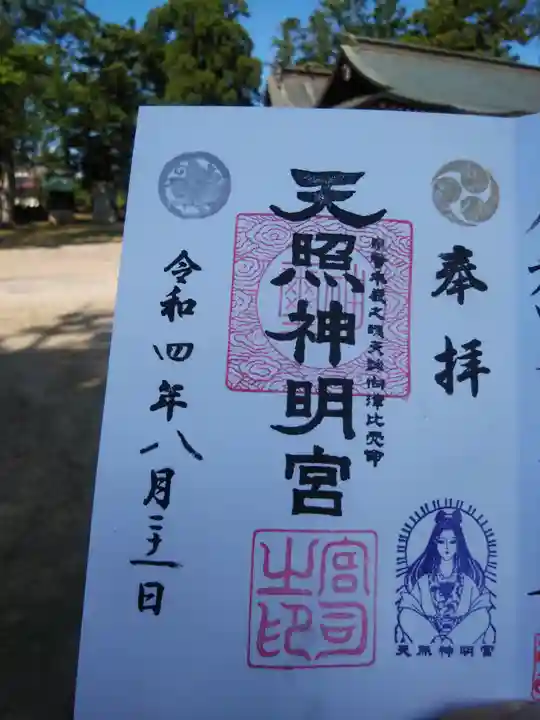 奉拝
天照神明宮
令和四年八月二十一日
宮司之印
天照神明宮